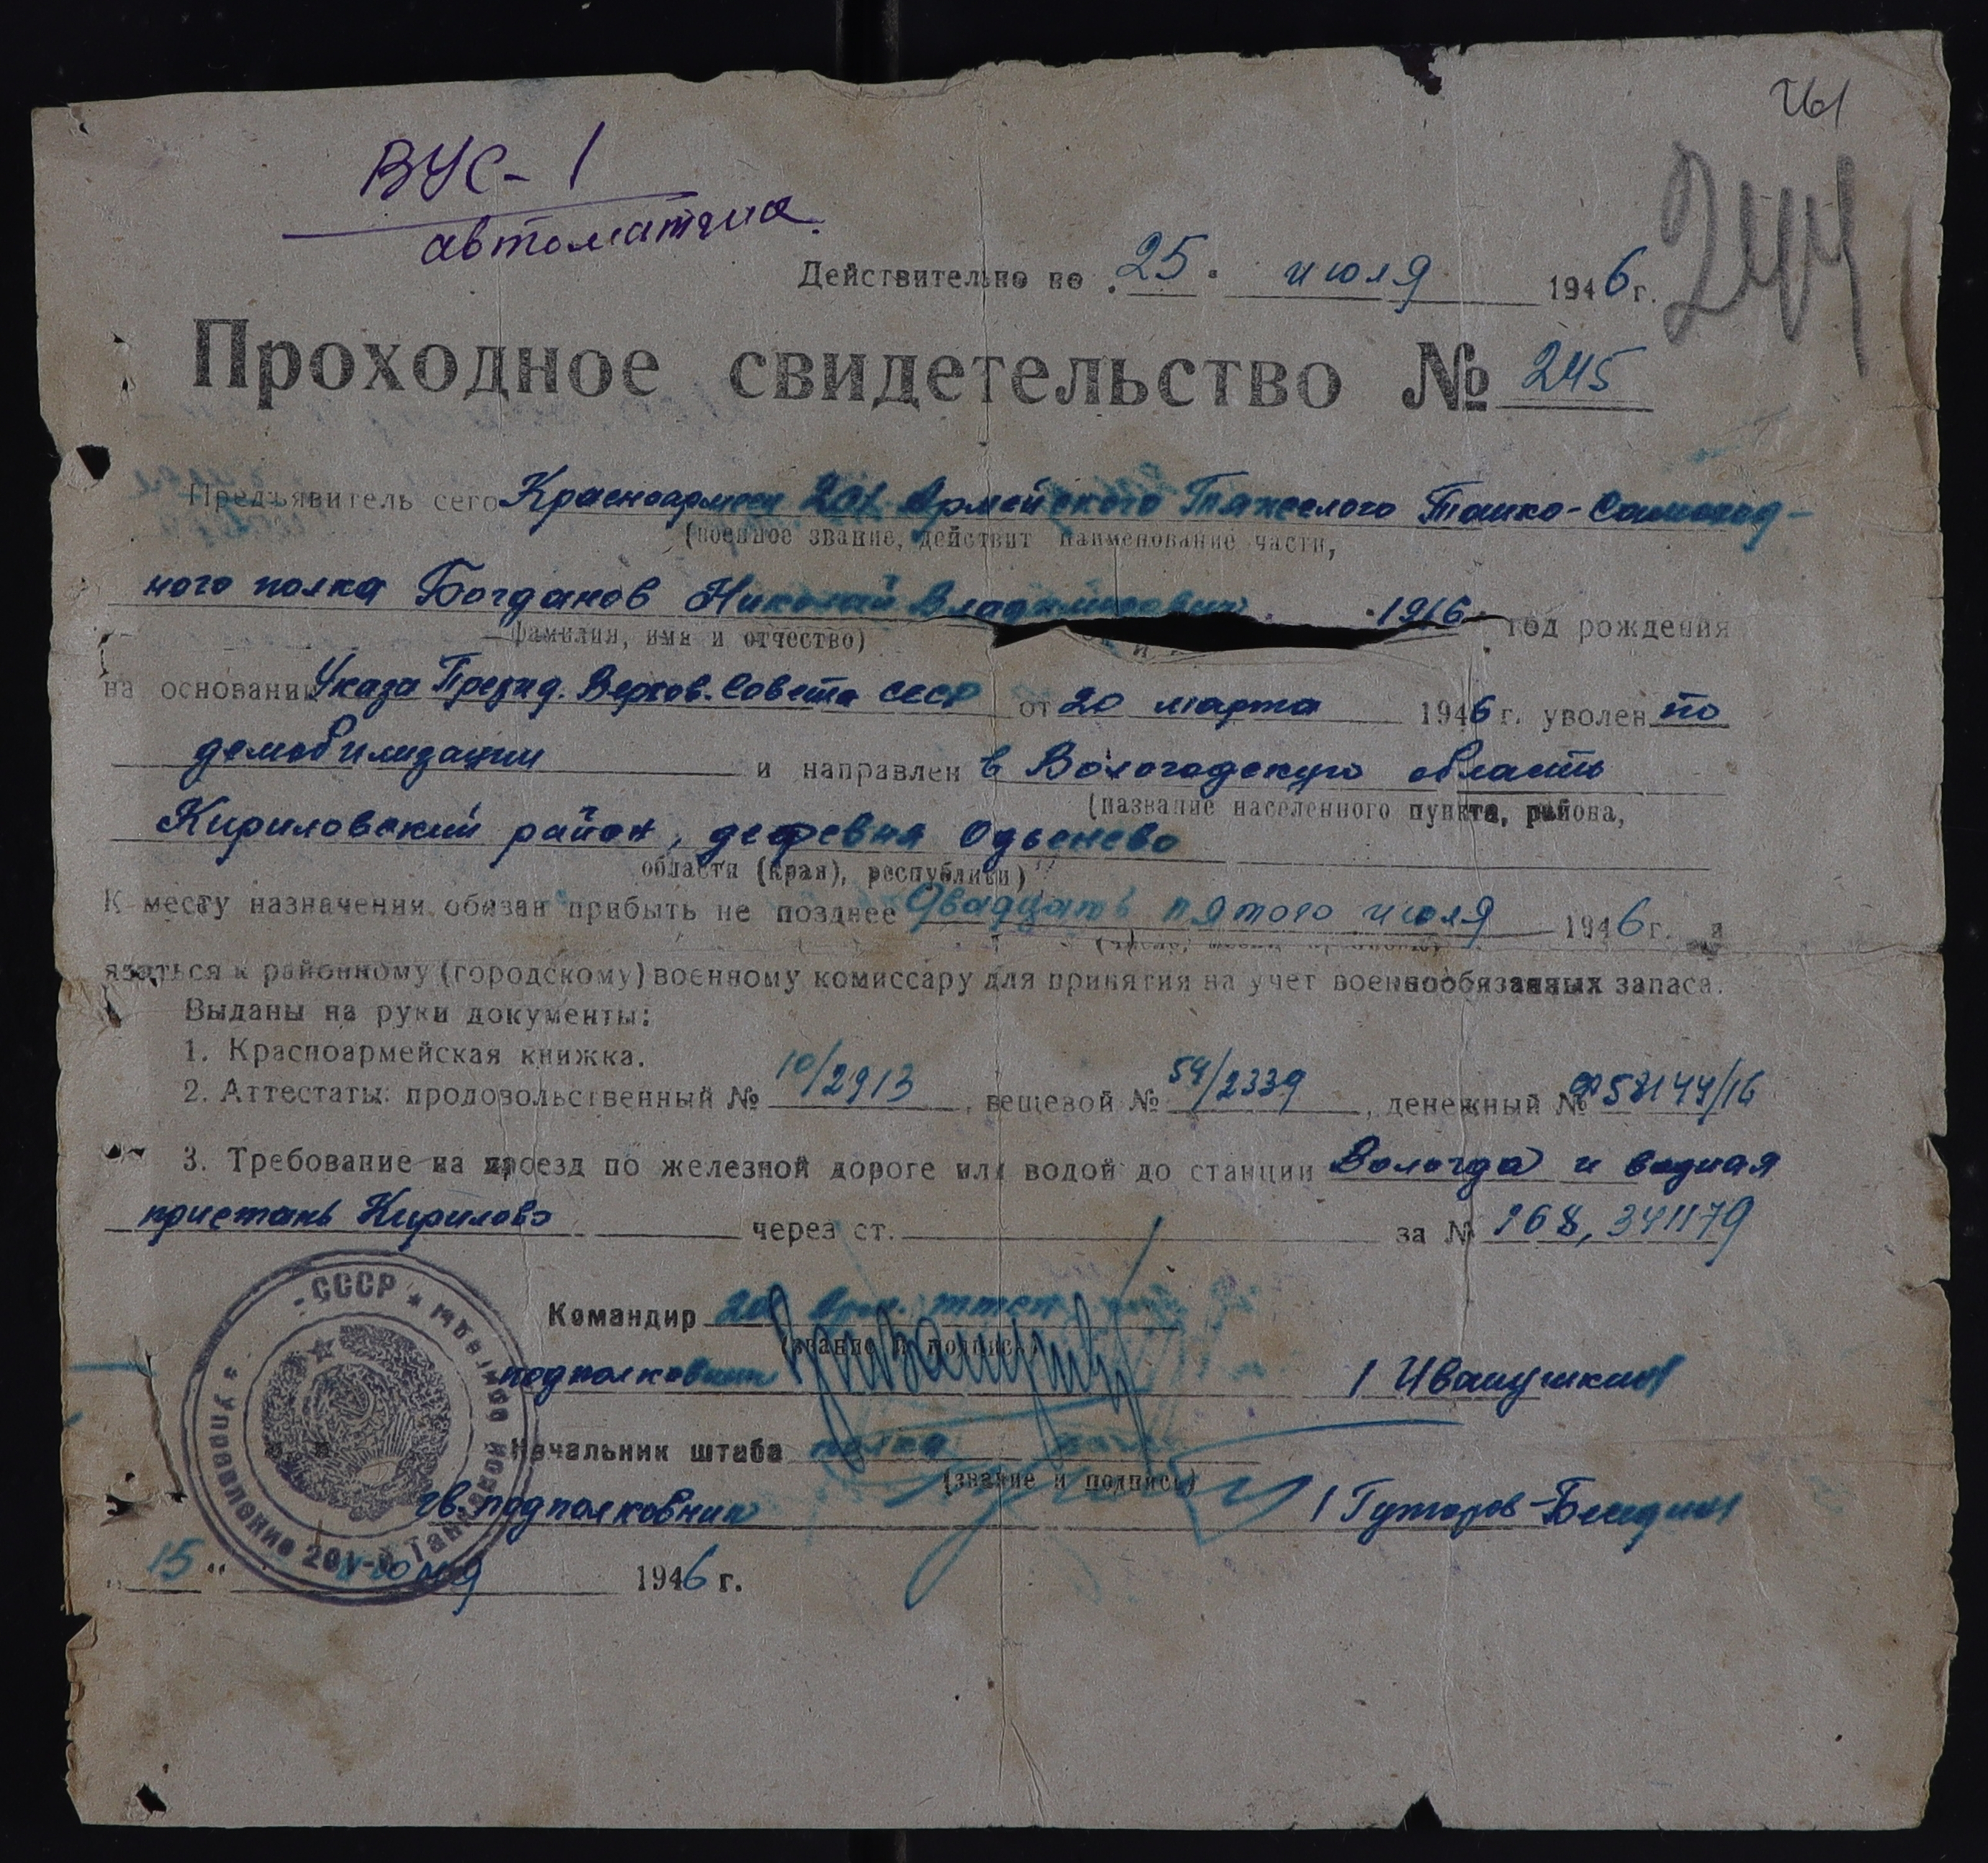 261
244
ВУС-1
автоматчик.
Действительно по „25" июля 1946 г.
Проходное свидетельство № 245
Предъявитель сего Красноармеец 201 Армейского Тяжелого Танко-Самоход-
(военное звание, действит наименование части,
ного полка Богданов Николай Владимирович 1916 год рождения
фамилия, имя и отчество)
на основании Указа Презид. Верхов. Совета СССР от 20 марта 1946 г. уволен по
демобилизации и направлен в Вологодскую область
(название населенного пункта, района,
Кириловский район, деревня Одьенево
области (края), республики)
К месту назначения обязан прибыть не позднее Двадцать пятого июля 1946 г. и
(число, месяц
явиться к районному (городскому) военному комиссару для принятия на учет военнообязанных запаса.
Выданы на руки документы:
1. Красноармейская книжка.
2. Аттестаты: продовольственный № 10/2913, вещевой № 54/2339, денежный № 58144/16
3. Требование на проезд по железной дороге или водой до станции Вологда и водная
пристань Кирилово через ст. за № 168, 341179
Командир 201 Арм. ттсп
(звание и подпись)
подполковник / Ивашушкин /
Начальник штаба полка
(звание и подпись)
гв. подполковник
„15" июля 1946 г.
СССР
Управление 201-й Танковой